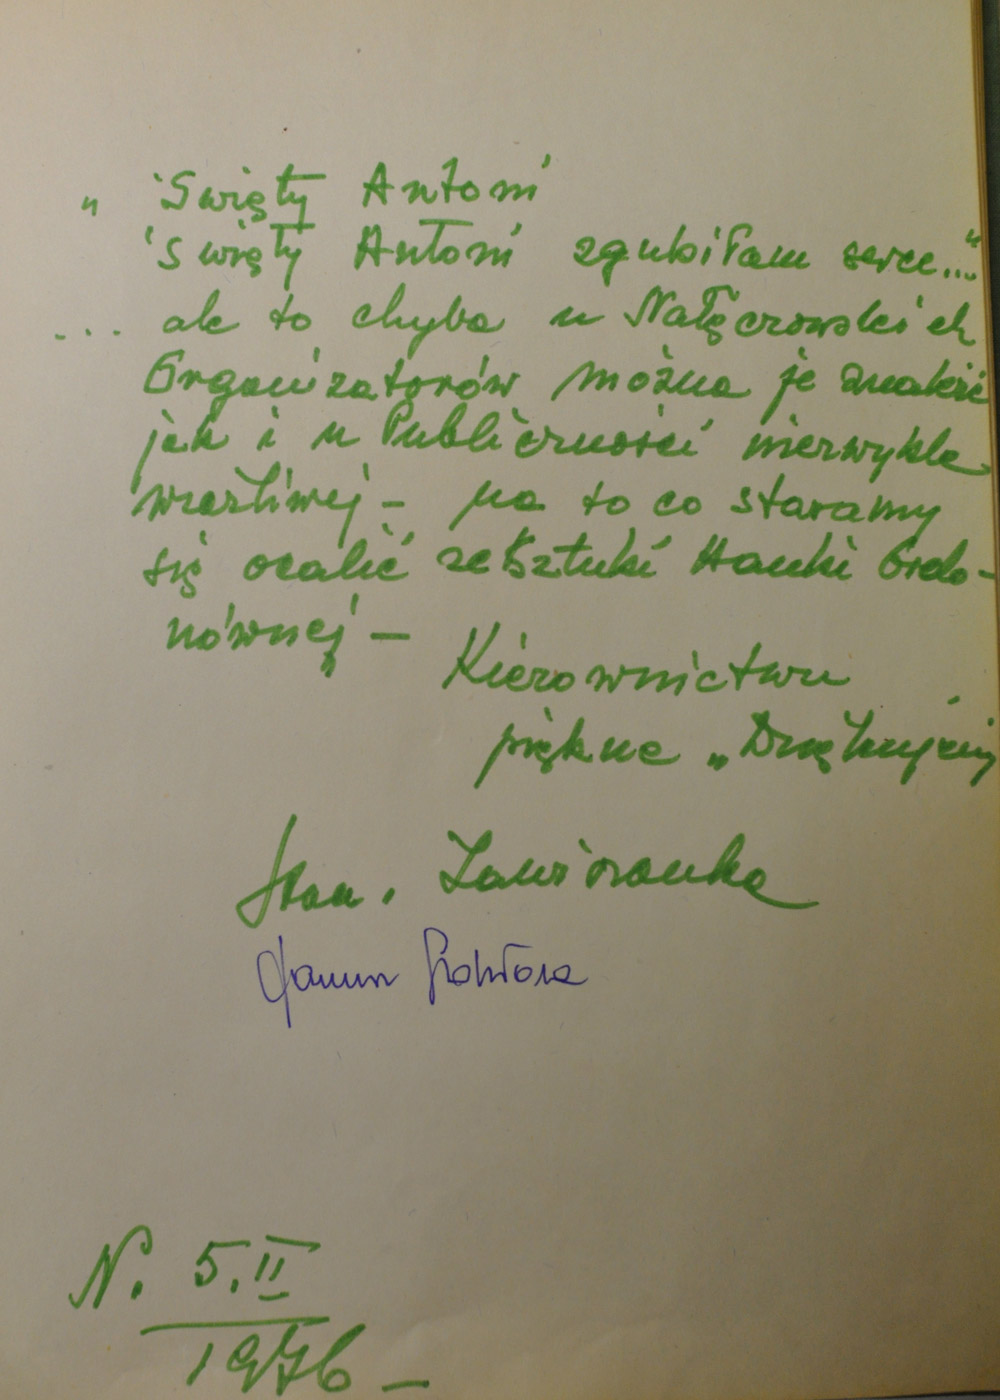 „Święty Antoni
Święty Antoni zgubiłam serce..."
... ale to chyba u Nałęczowskich
Organizatorów można je znaleźć
jak i u Publiczności niezwykle
wrażliwej – na to co staramy
się ocalić ze Sztuki Hanki Ordo-
nównej –
Kierownictwu
piękne „Dziękujemy
Zawiszanka
N. 5.II
1976 –